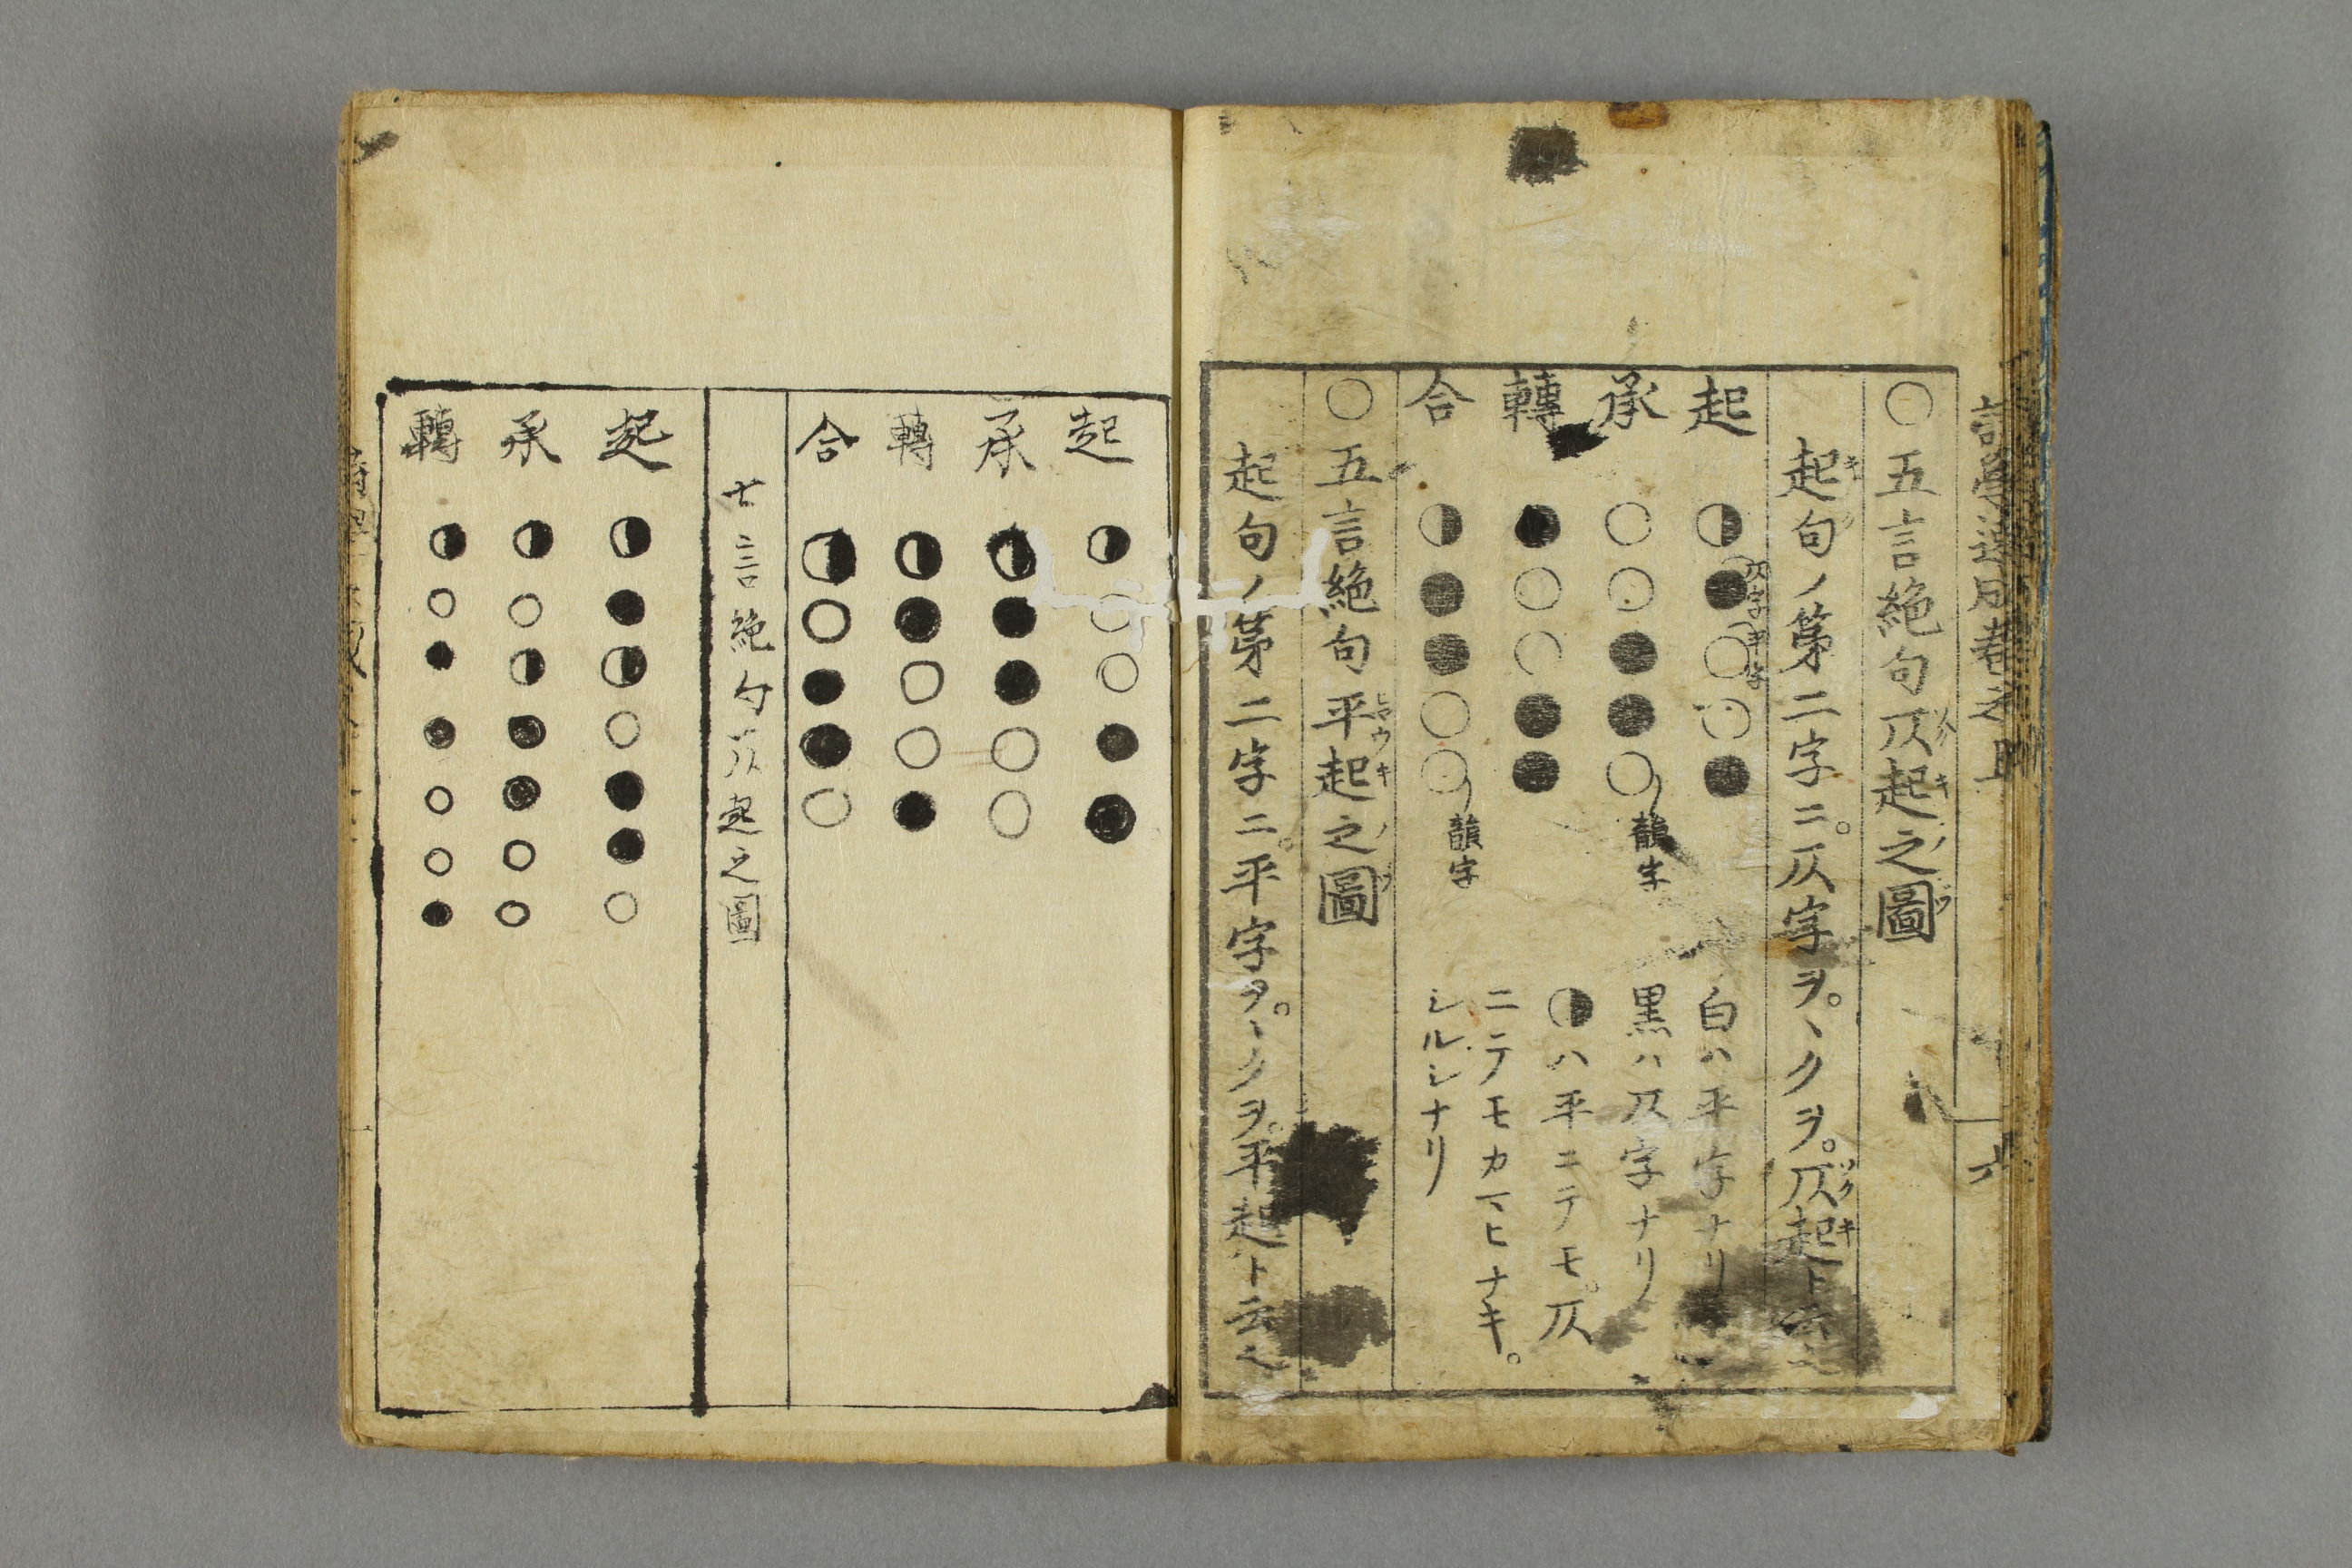 ○五言絶句仄起之圖
起句ノ第二字ニ。仄字ヲ。ヽクヲ。仄起ト云
起◑●○○●
承○○●●○韻字
轉●○○●●
合◑●●○○韻字
仄字
平字
白ハ平字ナリ
黒ハ仄字ナリ
◑ハ平ニテモ。仄
ニテモカマヒナキ。
シルシナリ
○五言絶句平起之圖
起句ノ第二字ニ。平字ヲ。ヽクヲ。平起ト云
六
起◑○○●●
承◑●●○○
轉◑●○○●
合◑○●●○
七言絶句仄起之圖
起◑●◑○●●○
承◑○◑●●○○
轉◑○●●○○●